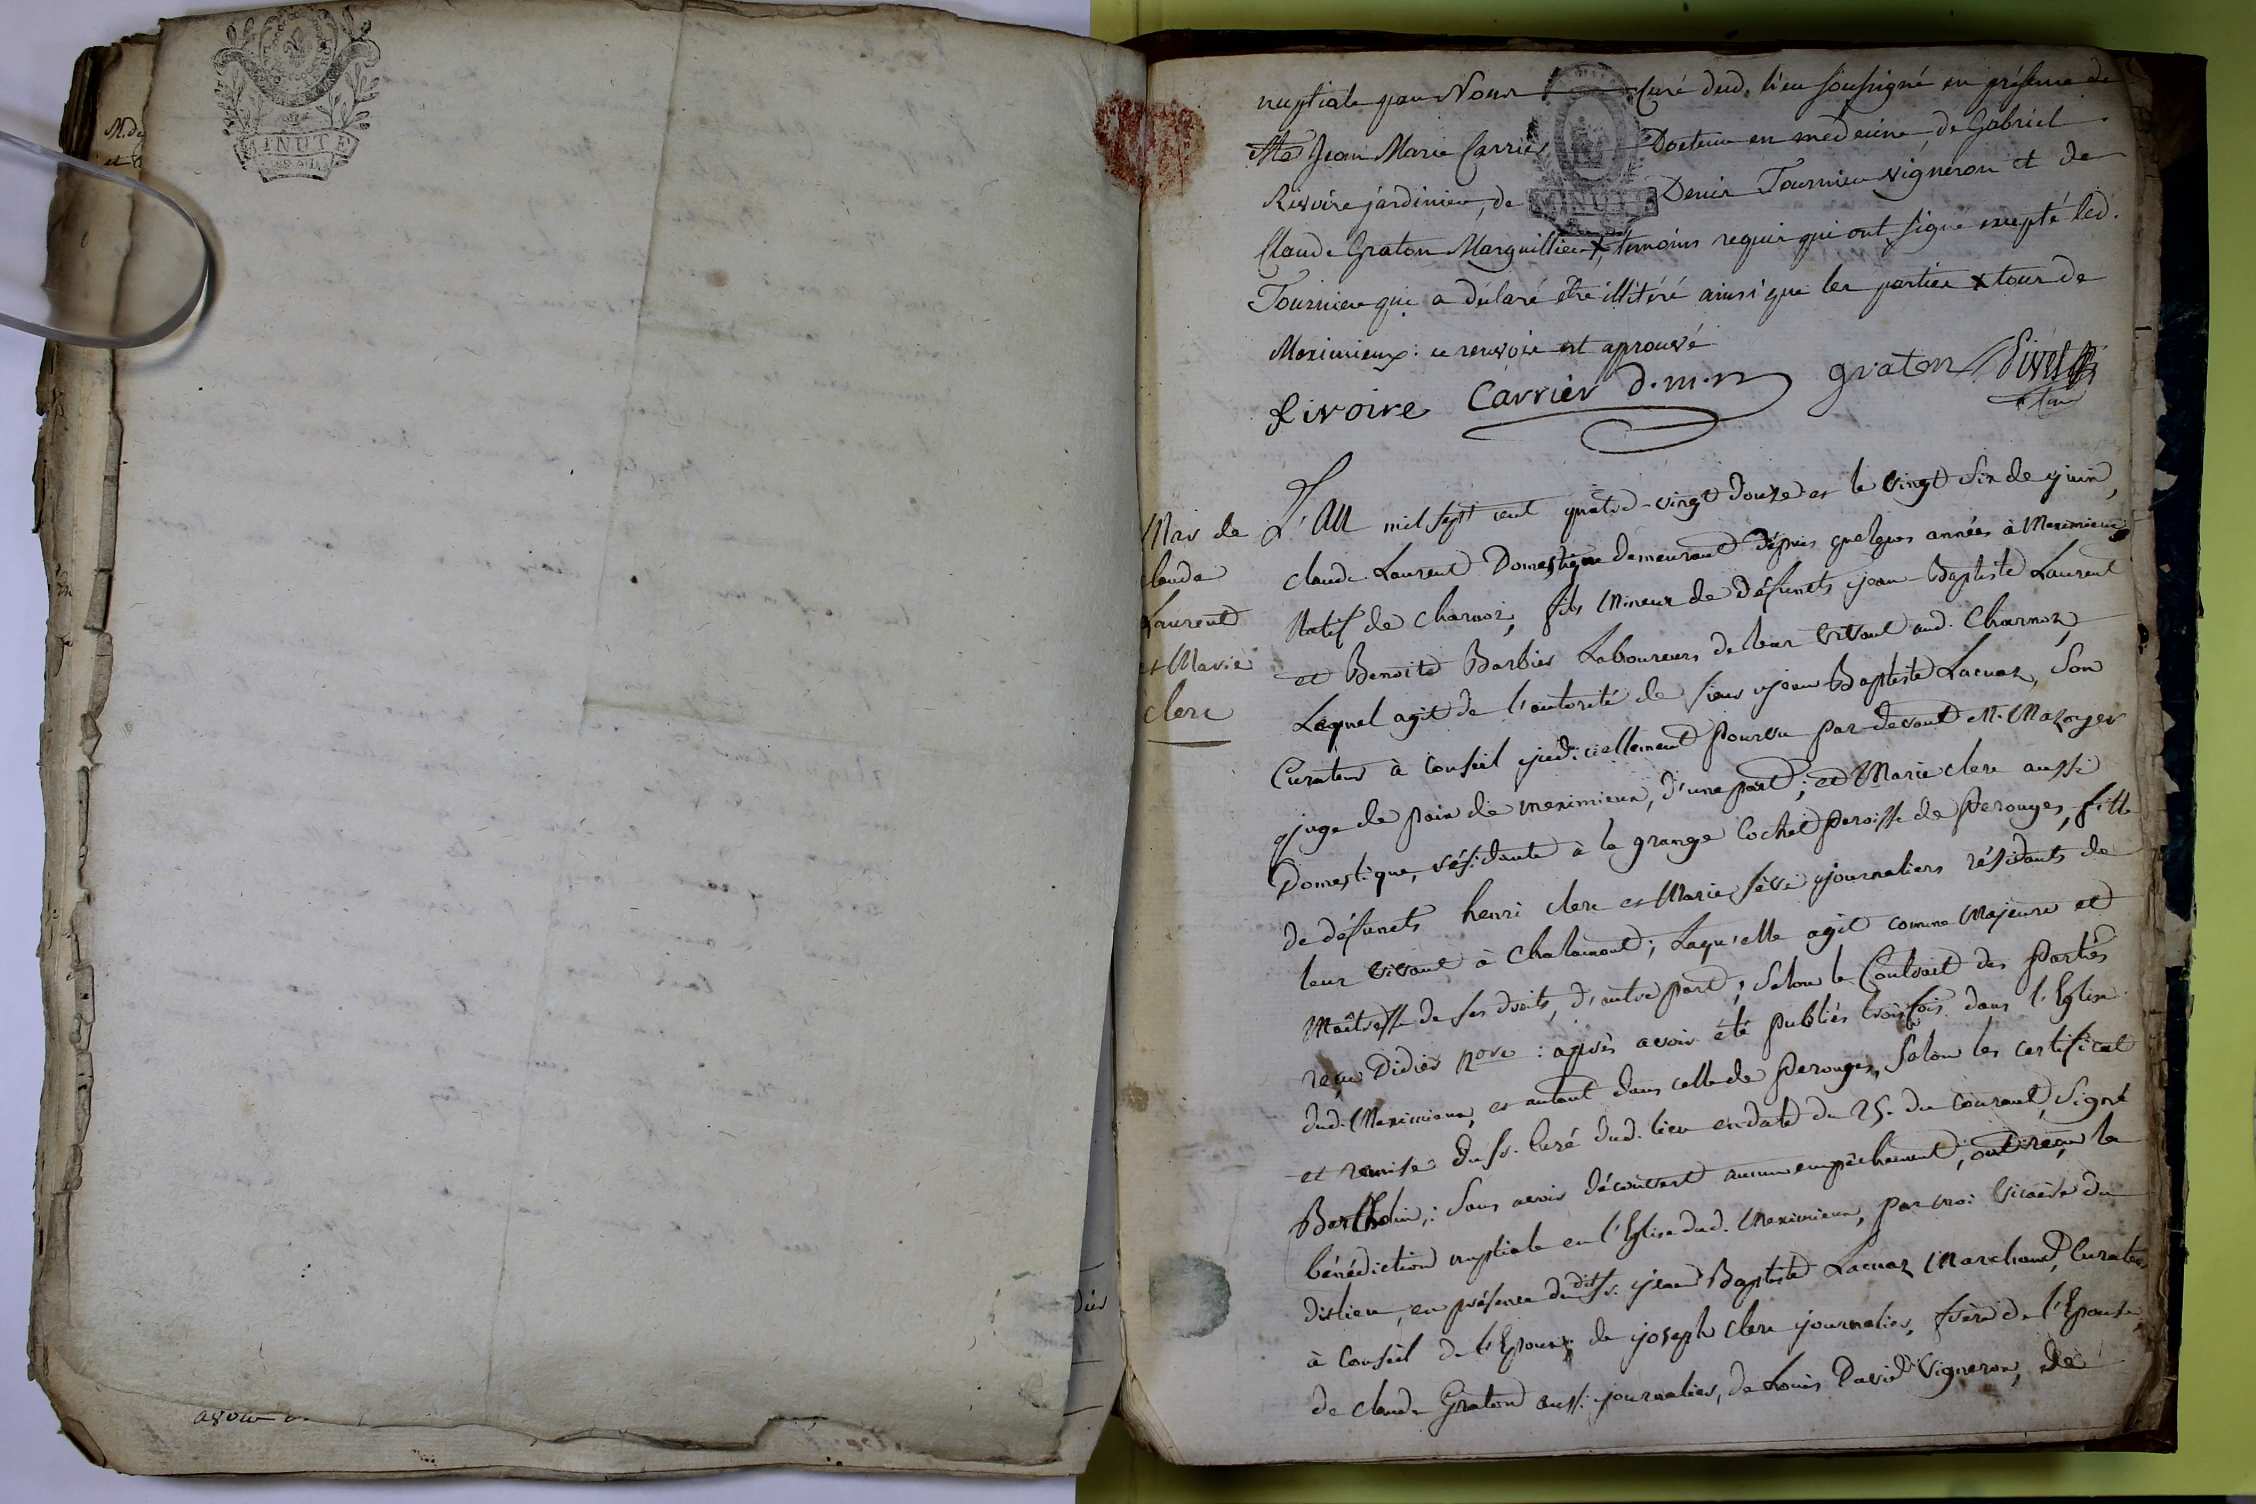 MINUTE
M. de
et
avoir
nuptiale par Nous Curé dud. lieu soussigné en présence de
Me Jean Marie Carrier Docteur en medecine de Gabriel
Rivoire jardinier, de Denis Tournier vigneron et de
MINUTE
Claude Graton Marguillier x, temoins requis qui ont signé excepté led.
Tournier qui a déclaré être illitéré ainsi que les parties x tour de
Meximieux : ce renvoie est aprouvé
Rivoire Carrier d.m.m graton
Mar de
claude
Laurent
et Marie
clerc
L'An mil sept cent quatre-vingt douze et le vingt six de juin,
claude Laurent Domestique demeurant depuis quelques années à Meximieux
Natif de charnoz, fils Mineur de défunts jean-Baptiste Laurent
et Benoite Barbier Laboureurs de leur vivant aud. Charnoz,
Lequel agit de l'autorité de sieur jean Baptiste Lacuaz, son
Curateur à conseil judiciellement pourvu par-devant M. Mazoyer
juge de paix de meximieux, d'une part; et Marie clerc aussi
Domestique, résidante à la grange Cochet paroisse de Perouges, fille
de défunts henri clerc et Marie sève journaliers résidants de
leur vivant à Chalamont; Laqu'elle agit comme Majeure et
Maîtresse de ses droits, d'autre part; selon le Contrait des Parties
reçu Didier nore : après avoir été publiés trois fois dans l'Eglise
dud. Meximieux, et autant dans celle de Perouges, selon les certificat
et remise du sr. Curé dud. lieu en date du 25. du courant, signé
Berthelin; : sans avoir découvert aucun empêchement, ont reçu la
bénédiction nuptiale en l'Eglise dud. Meximieux, par moi vicaire du
dit lieu, en présence du dit sr. jean Baptiste Lacuaz Marchand, Curateur
à conseil de l'Epoux; de joseph clerc journalier, frère de l'Epouse,
de claude Graton aussi journalier, de Louis David Vigneron, de